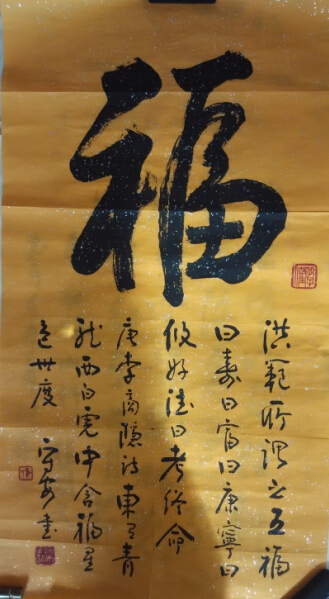 福
洪範所謂之五福
曰壽曰富曰康寧曰
攸好德曰考終命
唐李商隱詩東有青
龍西白虎中含福星
包世度 書